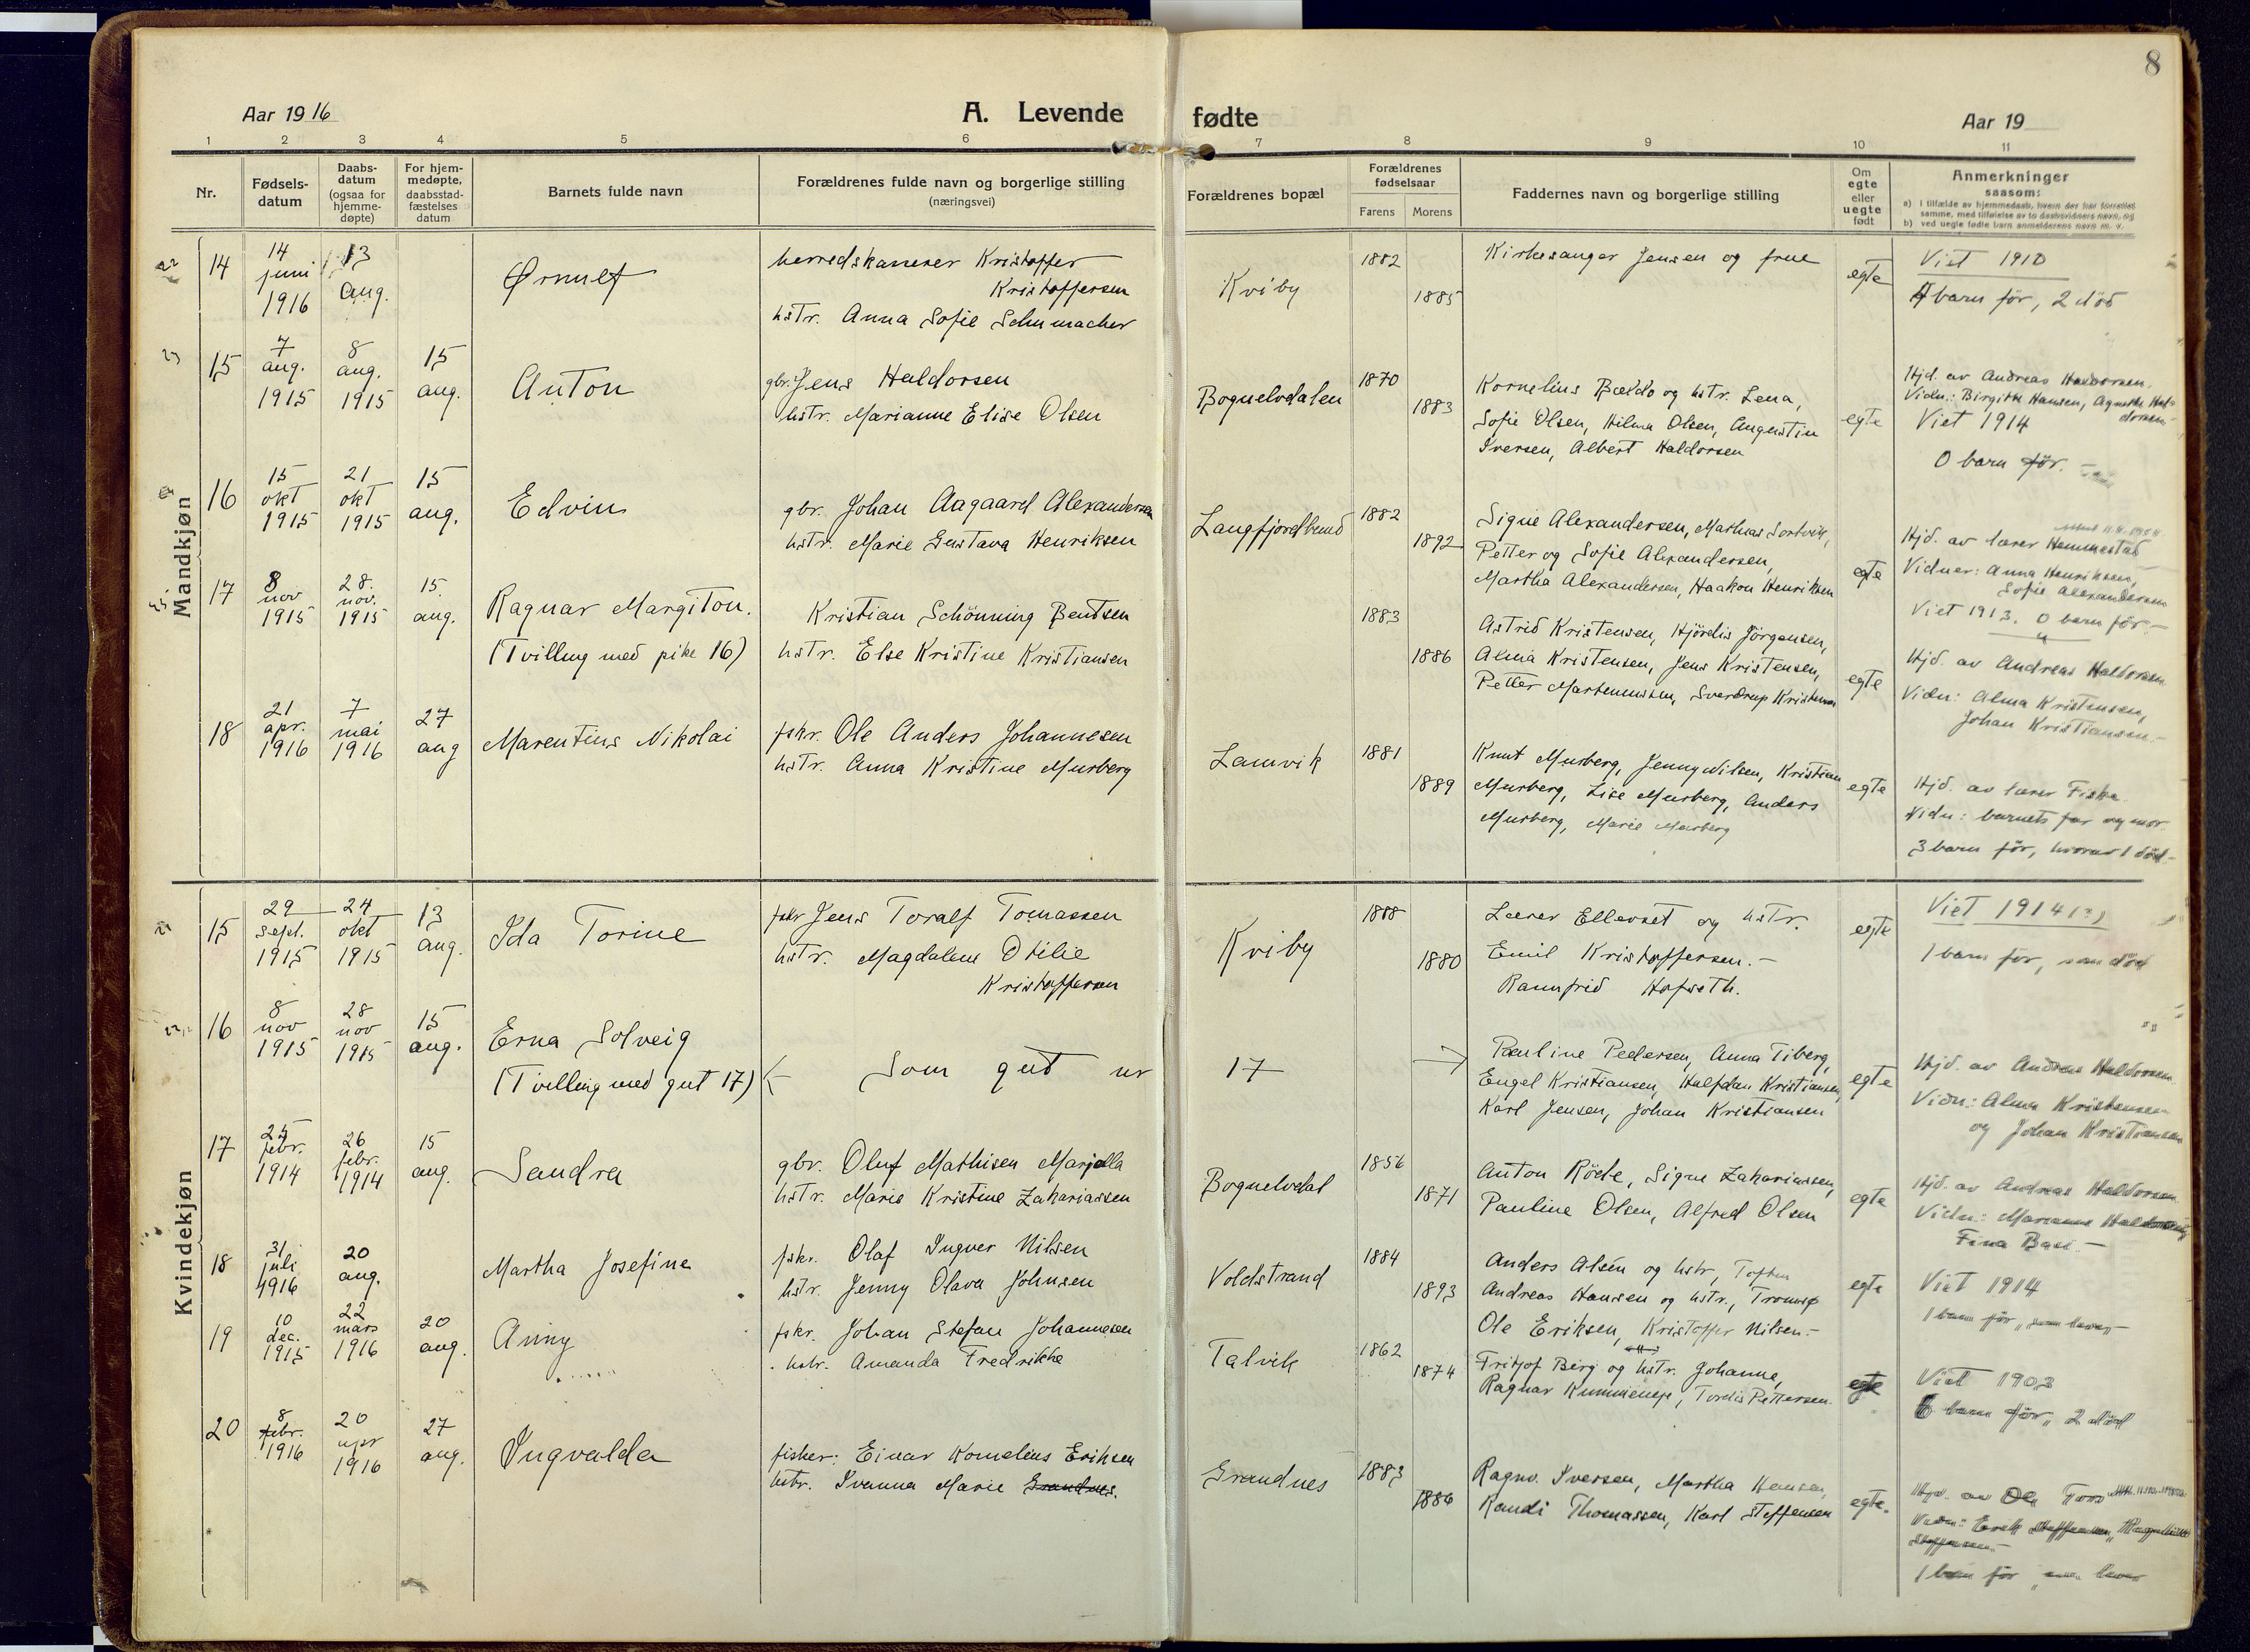 8
Aar 1916
A. Levende fødte
Aar 19
1 2 3 4 5 6 7 8 9 10 11
Nr.
Fødsels-
datum
Daabs-
datum
(ogsaa for
hjemme-
døpte)
For hjem-
medøpte,
daabsstad-
fæstelses
datum
Barnets fulde navn
Forældrenes fulde navn og borgerlige stilling
(næringsvei)
Forældrenes bopæl
Forældrenes
fødselsaar
Farens Morens
Faddernes navn og borgerlige stilling
Om
egte
eller
uegte
født
Anmerkninger
saasom:
a) i tilfælde av hjemmedaab, hvem der har forrettet
samme, med tilføielse av to daabsvidners navn, og
b) ved uegte fødte barn anmelderens navn m. v.
Mandkjøn
14
14
juni
1916
13
aug.
Ørnulf
herredskasserer Kristoffer
Kristoffersen
hstr. Anna Sofie Schumacher
Kviby
1882
1885
Kirkesanger Jensen og frue
egte
Viet 1910
4 barn før, 2 död
15
7
aug.
1915
8
aug.
1915
15
aug.
Anton
gbr. Jens Haldorsen
hstr. Marianne Elise Olsen
Bognelvdalen
1870
1883
Kornelius Bældo og hstr. Lena,
Sofie Olsen, Hilma Olsen, Augustin
Iversen, Albert Haldorsen
egte
Hjd. av Andreas Haldorsen.
Vidn.: Birgitte Hansen, Agnethe Hal-
dorsen
Viet 1914
0 barn før.
16
15
okt
1915
21
okt
1915
15
aug.
Edvin
gbr. Johan Aagaard Alexandersen
hstr. Marie Gustava Henriksen
Langfjordbund
1882
1892
Signe Alexandersen, Mathias Sortvik,
Petter og Sofie Alexandersen,
Martha Alexandersen, Haakon Henriksen
egte
Hjd. av lærer Hemmestad
Vidner: Anna Henriksen,
Sofie Alexandersen
Viet 1913. 0 barn før.
17
8
nov
1915
28.
nov.
1915
15.
aug.
Ragnar Margiton.
(Tvilling med pike 16)
Kristian Schönning Bentsen
hstr. Else Kristine Kristiansen
1883
1886
Astrid Kristensen, Hjördis Jörgensen,
Alma Kristensen, Jens Kristensen,
Petter Martinussen, Sverdrup Kristensen
egte
Hjd. av Andreas Haldorsen
Vidn: Alma Kristensen,
Johan Kristiansen.
18
21
apr.
1916
7
mai
1916
27
aug
Marentius Nikolai
fskr. Ole Anders Johannesen
hstr. Anna Kristine Murberg
Lamvik
1881
1889
Knut Murberg, Jenny Nilsen, Kristian
Murberg, Lise Murberg, Anders
Murberg, Marie Murberg
egte
Hjd. av lærer Fiske
Vidn: barnets far og mor.
3 barn før, hvorav 1 död
Kvindekjøn
15
29
sept.
1915
24
okt
1915
13
aug.
Ida Torine
fskr Jens Toralf Tomassen
hstr. Magdalene Otilie
Kristoffersen
Kviby
1888
1880
Lærer Ellevset og hstr.
Emil Kristoffersen.
Rannfrid Hofseth.
egte
Viet 1914(?)
1 barn før, som död
16
8
nov
1915
28
nov
1915
15
aug.
Erna Solveig
(Tvilling med gut 17)
Som gut nr 17
Pauline Pedersen, Anna Tiberg,
Engel Kristiansen, Halfdan Kristiansen,
Karl Jensen, Johan Kristiansen
egte
Hjd. av Andreas Haldorsen
Vidn: Alma Kristensen
og Johan Kristiansen
17
25
febr.
1914
26
febr.
1914
15
aug.
Sandra
gbr. Oluf Mathisen Marjalla
hstr. Marie Kristine Zakariassen
Bognelvdal
1856
1871
Anton Röde, Signe Zakariassen,
Pauline Olsen, Alfred Olsen
egte
Hjd. av Andreas Haldorsen
Vidn: Marianne Haldorsen,
Fina Basi.
18
31
juli
1916
20
aug.
Martha Josefine
fskr. Olaf Ingver Nilsen
hstr. Jenny Olava Johnsen
Voldstrand
1884
1893
Anders Alsén og hstr, Toften
Andreas Hansen og hstr., Tromsø
Ole Eriksen, Kristoffer Nilsen.
egte
Viet 1914
1 barn før, som lever
19
10
dec.
1915
22
mars
1916
20
aug.
Anny
fskr. Johan Stefan Johannesen
hstr. Amanda Fredrikke
Talvik
1862
1874
Fritjof Berg og hstr. Johanne,
Ragnar Kummeneje, Tordis Pettersen.
egte
Viet 1903
6 barn før, 2 död
20
8
febr.
1916
20
apr
1916
27
aug.
Ingvalda
fisker: Einar Kornelius Eriksen
hstr. Ivanna Marie Grandnes.
Grandnes
1883
1886
Ragnv. Iversen, Martha Hansen,
Randi Thomassen, Karl Steffensen
egte.
Hjd. av Ole
1 barn før, som lever